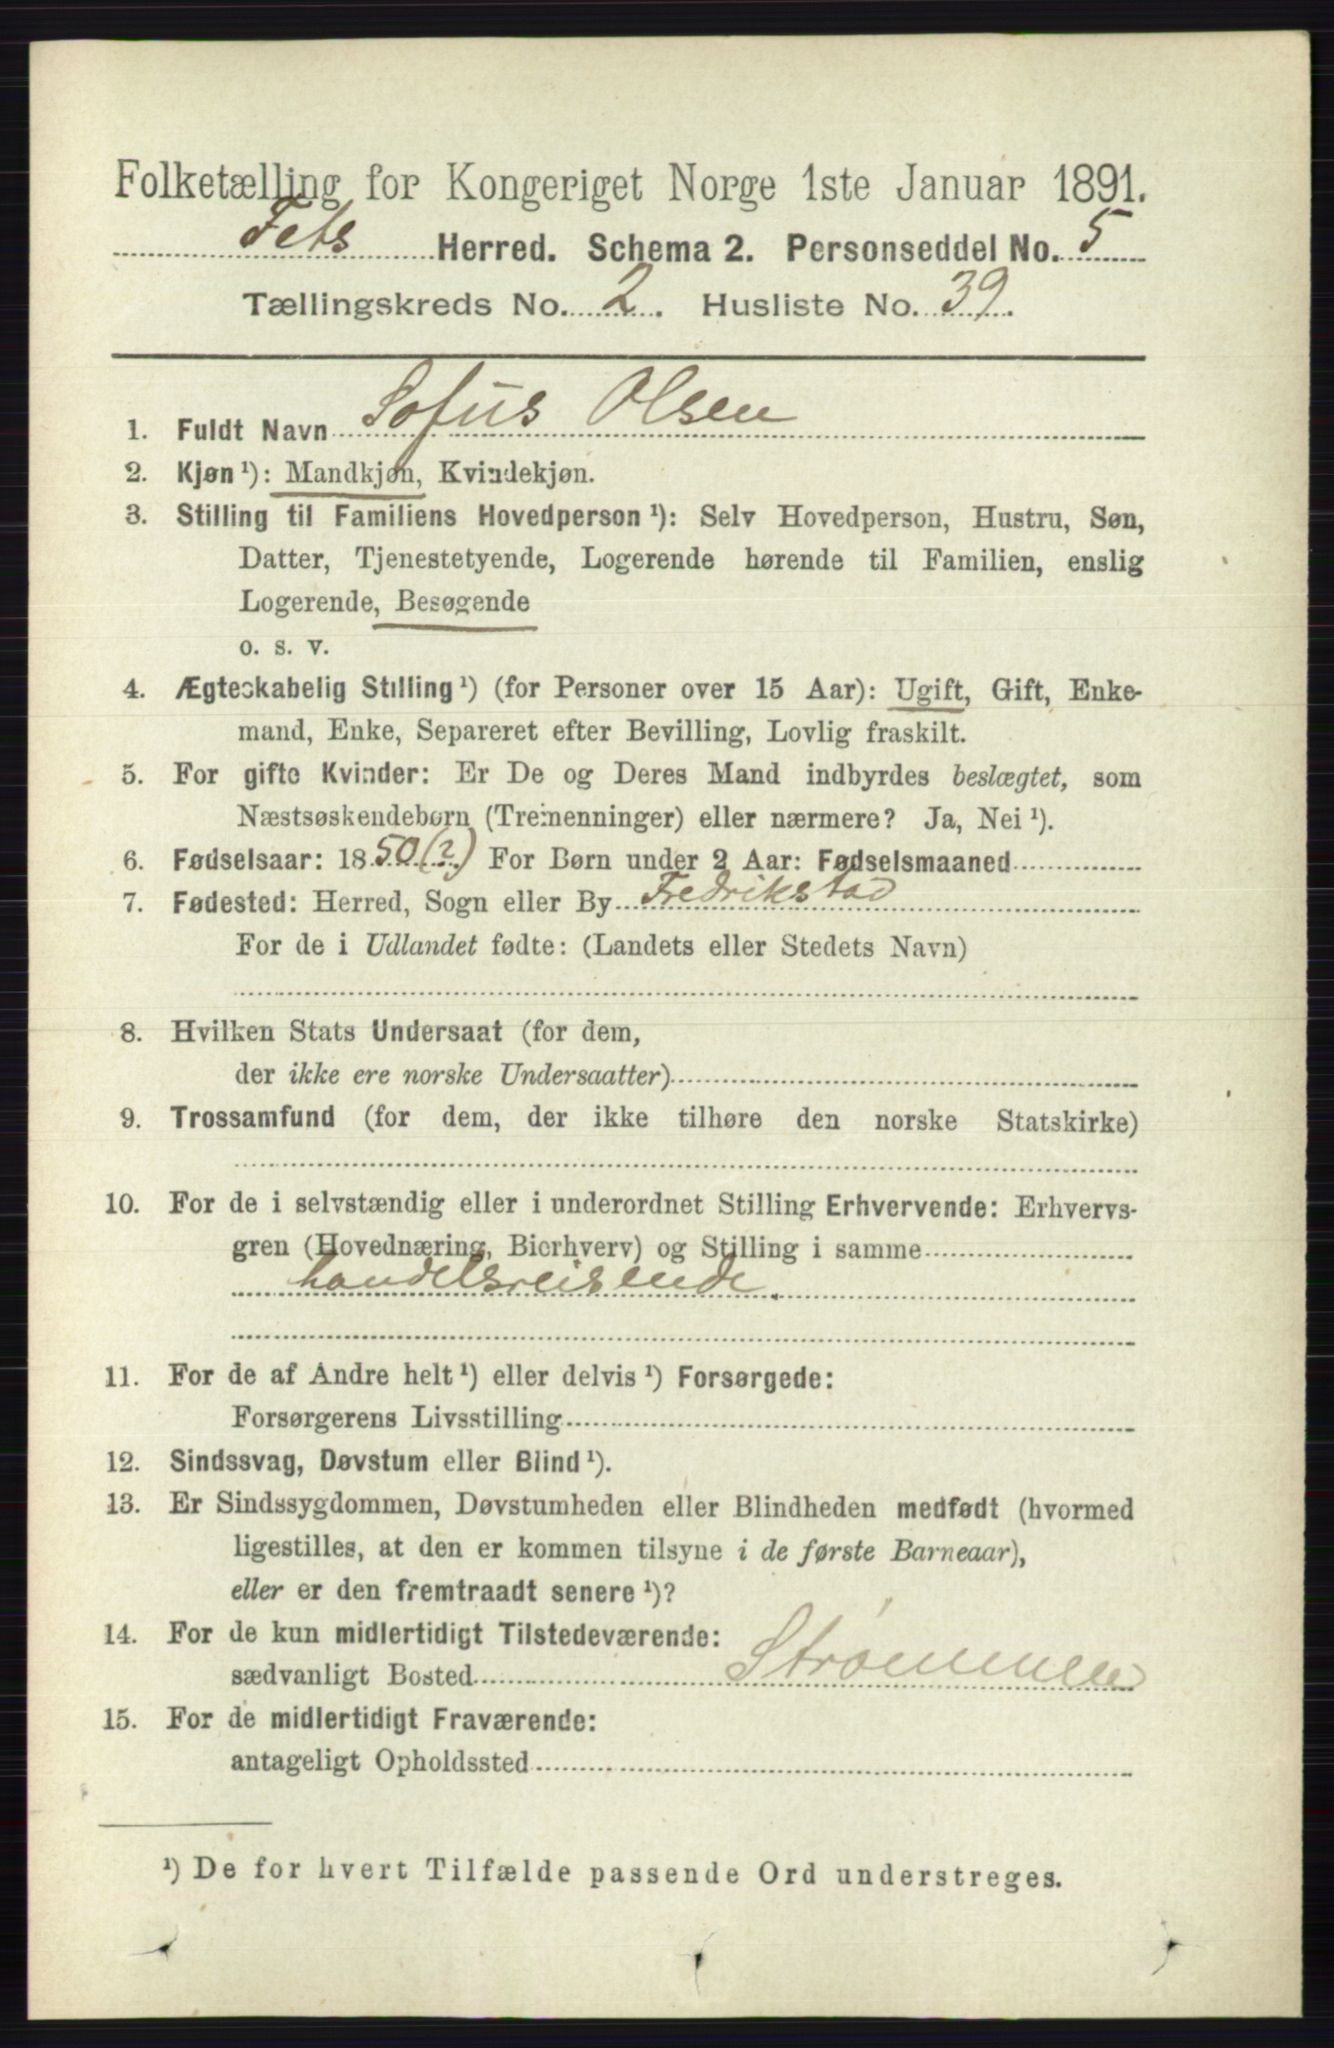 Folketælling for Kongeriget Norge 1ste Januar 1891.
Fets Herred. Schema 2. Personseddel No. 5
Tællingskreds No. 2. Husliste No. 39.
1. Fuldt Navn Sofus Olsen
2. Kjøn¹): Mandkjøn, Kvindekjøn.
3. Stilling til Familiens Hovedperson¹): Selv Hovedperson, Hustru, Søn,
Datter, Tjenestetyende, Logerende hørende til Familien, enslig
Logerende, Besøgende
o. s. v.
4. Ægteskabelig Stilling¹) (for Personer over 15 Aar): Ugift, Gift, Enke-
mand, Enke, Separeret efter Bevilling, Lovlig fraskilt.
5. For gifte Kvinder: Er De og Deres Mand indbyrdes beslægtet, som
Næstsøskendebørn (Tremenninger) eller nærmere? Ja, Nei¹).
6. Fødselsaar: 1850(?) For Børn under 2 Aar: Fødselsmaaned
7. Fødested: Herred, Sogn eller By Fredrikstad
For de i Udlandet fødte: (Landets eller Stedets Navn)
8. Hvilken Stats Undersaat (for dem,
der ikke ere norske Undersaatter)
9. Trossamfund (for dem, der ikke tilhøre den norske Statskirke)
10. For de i selvstændig eller i underordnet Stilling Erhvervende: Erhvervs-
gren (Hovednæring, Bierhverv) og Stilling i samme
handelsreisende.
11. For de af Andre helt¹) eller delvis¹) Forsørgede:
Forsørgerens Livsstilling
12. Sindssvag, Døvstum eller Blind¹).
13. Er Sindssygdommen, Døvstumheden eller Blindheden medfødt (hvormed
ligestilles, at den er kommen tilsyne i de første Barneaar),
eller er den fremtraadt senere¹)?
14. For de kun midlertidigt Tilstedeværende:
sædvanligt Bosted Strømmen
15. For de midlertidigt Fraværende:
antageligt Opholdssted
¹) De for hvert Tilfælde passende Ord understreges.